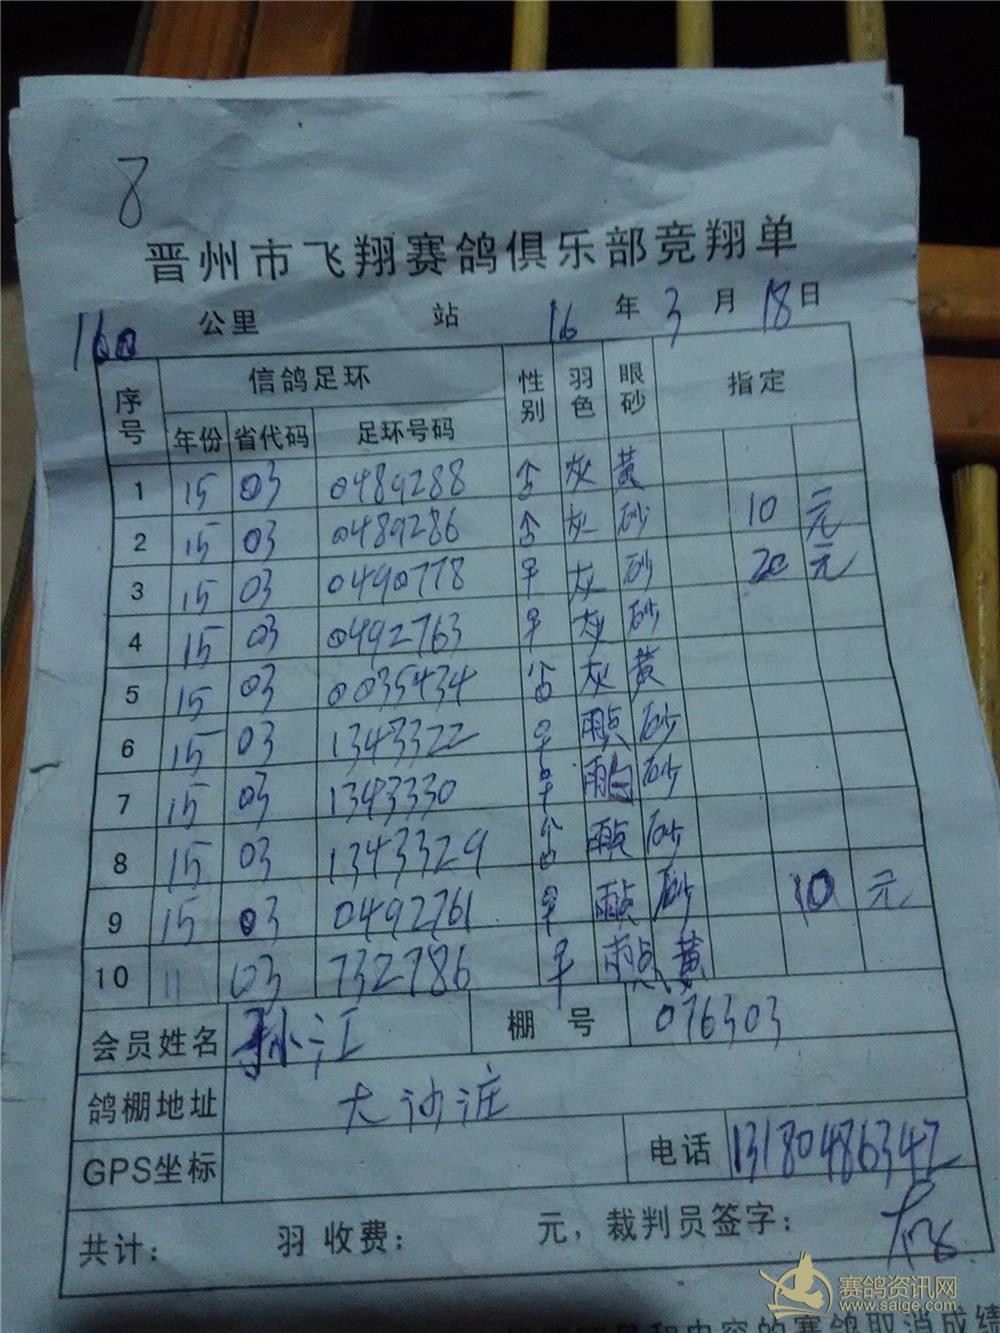 8
晋州市飞翔赛鸽俱乐部竞翔单
160 公里 站 16 年 3 月 18 日
序号 信鸽足环 性别 羽色 眼砂 指定
年份 省代码 足环号码
1 15 03 0489288 ♂ 灰 黄
2 15 03 0489286 ♂ 灰 砂 10 元
3 15 03 0490778 ♀ 灰 砂 20 元
4 15 03 0492763 ♀ 灰 砂
5 15 03 0035434 ♂ 灰 黄
6 15 03 1343322 ♀ 雨点 砂
7 15 03 1343330 ♀ 雨白 砂
8 15 03 1343329 ♂ 雨点 砂
9 15 03 0492761 ♀ 雨点 砂 10 元
10 11 03 732786 ♀ 雨点 黄
会员姓名 孙江 棚号 076303
鸽棚地址 大沙洼
GPS坐标 电话 13180486342
共计： 羽 收费： 元，裁判员签字：
赛鸽资讯网
www.saige.com
和内容的赛鸽取消成绩